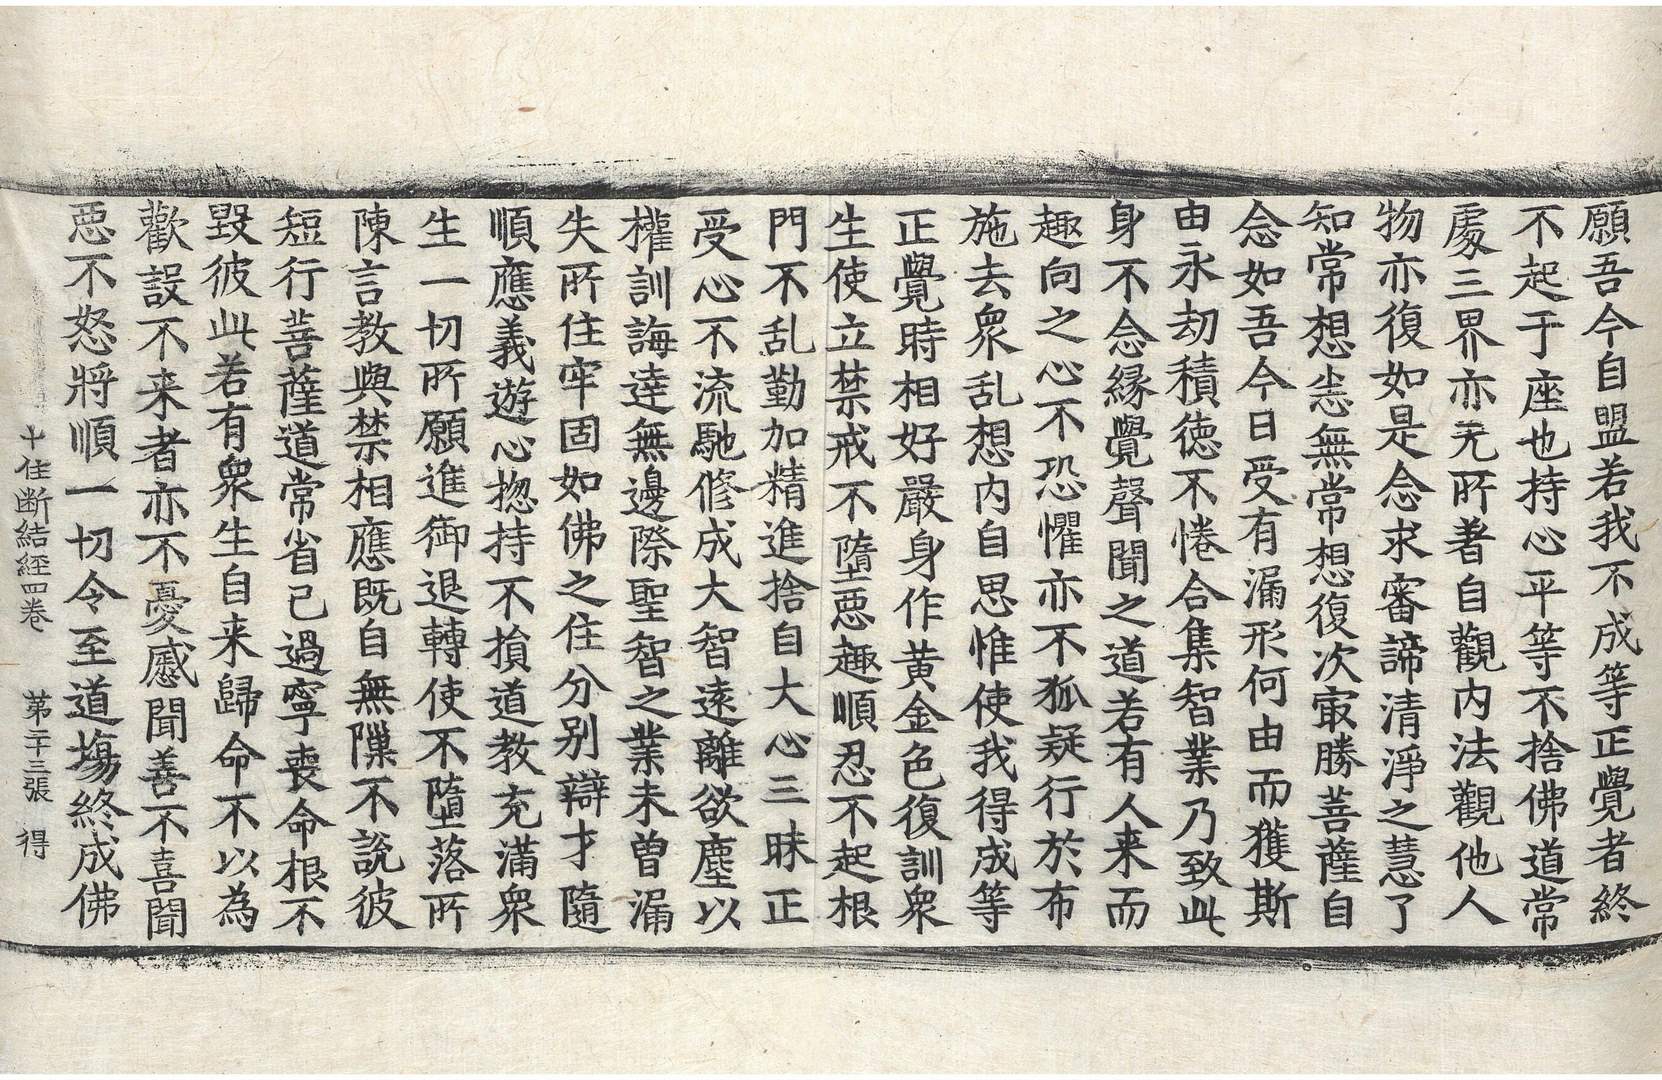 願吾今自盟若我不成等正覺者終
不起于座也持心平等不捨佛道常
處三界亦无所著自觀内法觀他人
物亦復如是念求審諦清淨之慧了
知常想恙無常想復次㝡勝菩薩自
念如吾今日受有漏形何由而獲斯
由永劫積德不惓合集智業乃致此
身不念緣覺聲聞之道若有人来而
趣向之心不恐懼亦不狐疑行於布
施去衆乱想内自思惟使我得成等
正覺時相好嚴身作黄金色復訓衆
生使立禁戒不墮惡趣順忍不起根
門不乱勤加精進捨自大心三昧正
受心不流馳修成大智遠離欲塵以
權訓誨達無邊際聖智之業未曾漏
失所住牢固如佛之住分别辯才隨
順應義遊心揔持不損道教充滿衆
生一切所願進御退轉使不墮落所
陳言教與禁相應既自無隟不説彼
短行菩薩道常省已過寧喪命根不
毀彼此若有衆生自来歸命不以為
歡設不来者亦不憂慼聞善不喜聞
惡不怒將順一切令至道塲終成佛
十住断結經四卷 第二十三張 得